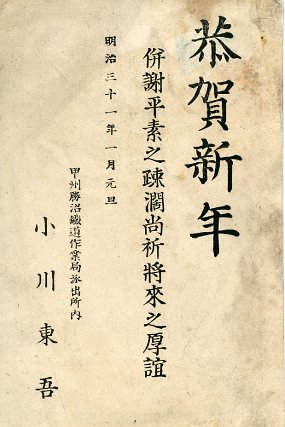 恭賀新年
併謝平素之疎濶尚祈將來之厚誼
明治三十一年一月元旦
甲州勝沼鐵道作業局派出所内
小川東吾